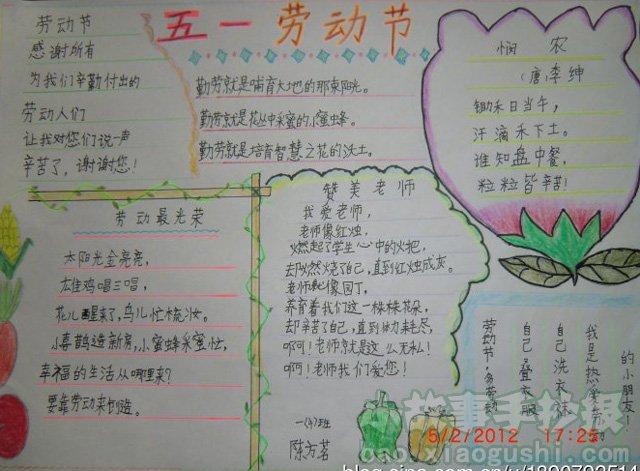 五一劳动节
劳动节
感谢所有
为我们辛勤付出的
劳动人们
让我对您们说一声
辛苦了，谢谢您！
勤劳就是哺育大地的那束阳光。
勤劳就是花丛中采蜜的小蜜蜂。
勤劳就是培育智慧之花的沃土。
悯 农
（唐）李绅
锄禾日当午，
汗滴禾下土。
谁知盘中餐，
粒粒皆辛苦！
劳动最光荣
太阳光金亮亮，
雄鸡唱三唱，
花儿醒来了，鸟儿忙梳妆。
小喜鹊造新房，小蜜蜂采蜜忙，
幸福的生活从哪里来？
要靠劳动来创造。
赞美老师
我爱老师，
老师像红烛，
燃起了学生心中的火把，
却燃烧了自己，直到红烛成灰。
老师像园丁，
养育着我们这一棵棵花朵，
却辛苦了自己，直到体力耗尽，
啊！老师就是这么无私！
啊！老师我们爱您！
一（4）班
陈方茗
的小朋友！
我是热爱劳动
自己洗衣袜
自己叠衣服
劳动节，多劳动
故事手抄报
5/2/2012 17:25